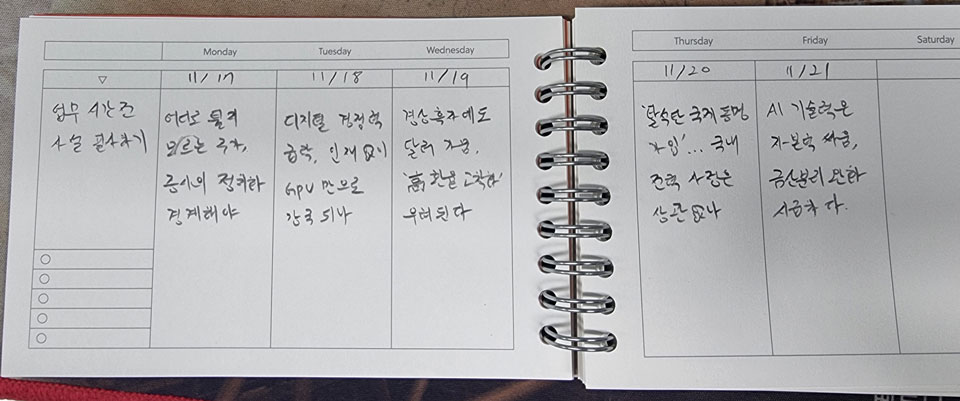 Monday Tuesday Wednesday
▽ 11/17 11/18 11/19
업무 시간 전
사설 필사하기
어디로 튈지
모르는 주가,
증시의 정치화
경계해야
디지털 경쟁력
급락, 인재 없이
GPU 만으로
강국 되나
경상흑자에도
달러 가뭄,
'高환율 고착화'
우려된다
Thursday Friday Saturday
11/20 11/21
'탈석탄 국제동맹
가입'... 국내
전력 사정은
상관없나
AI 기술력은
자본력 싸움,
금산분리 완화
시급하다.